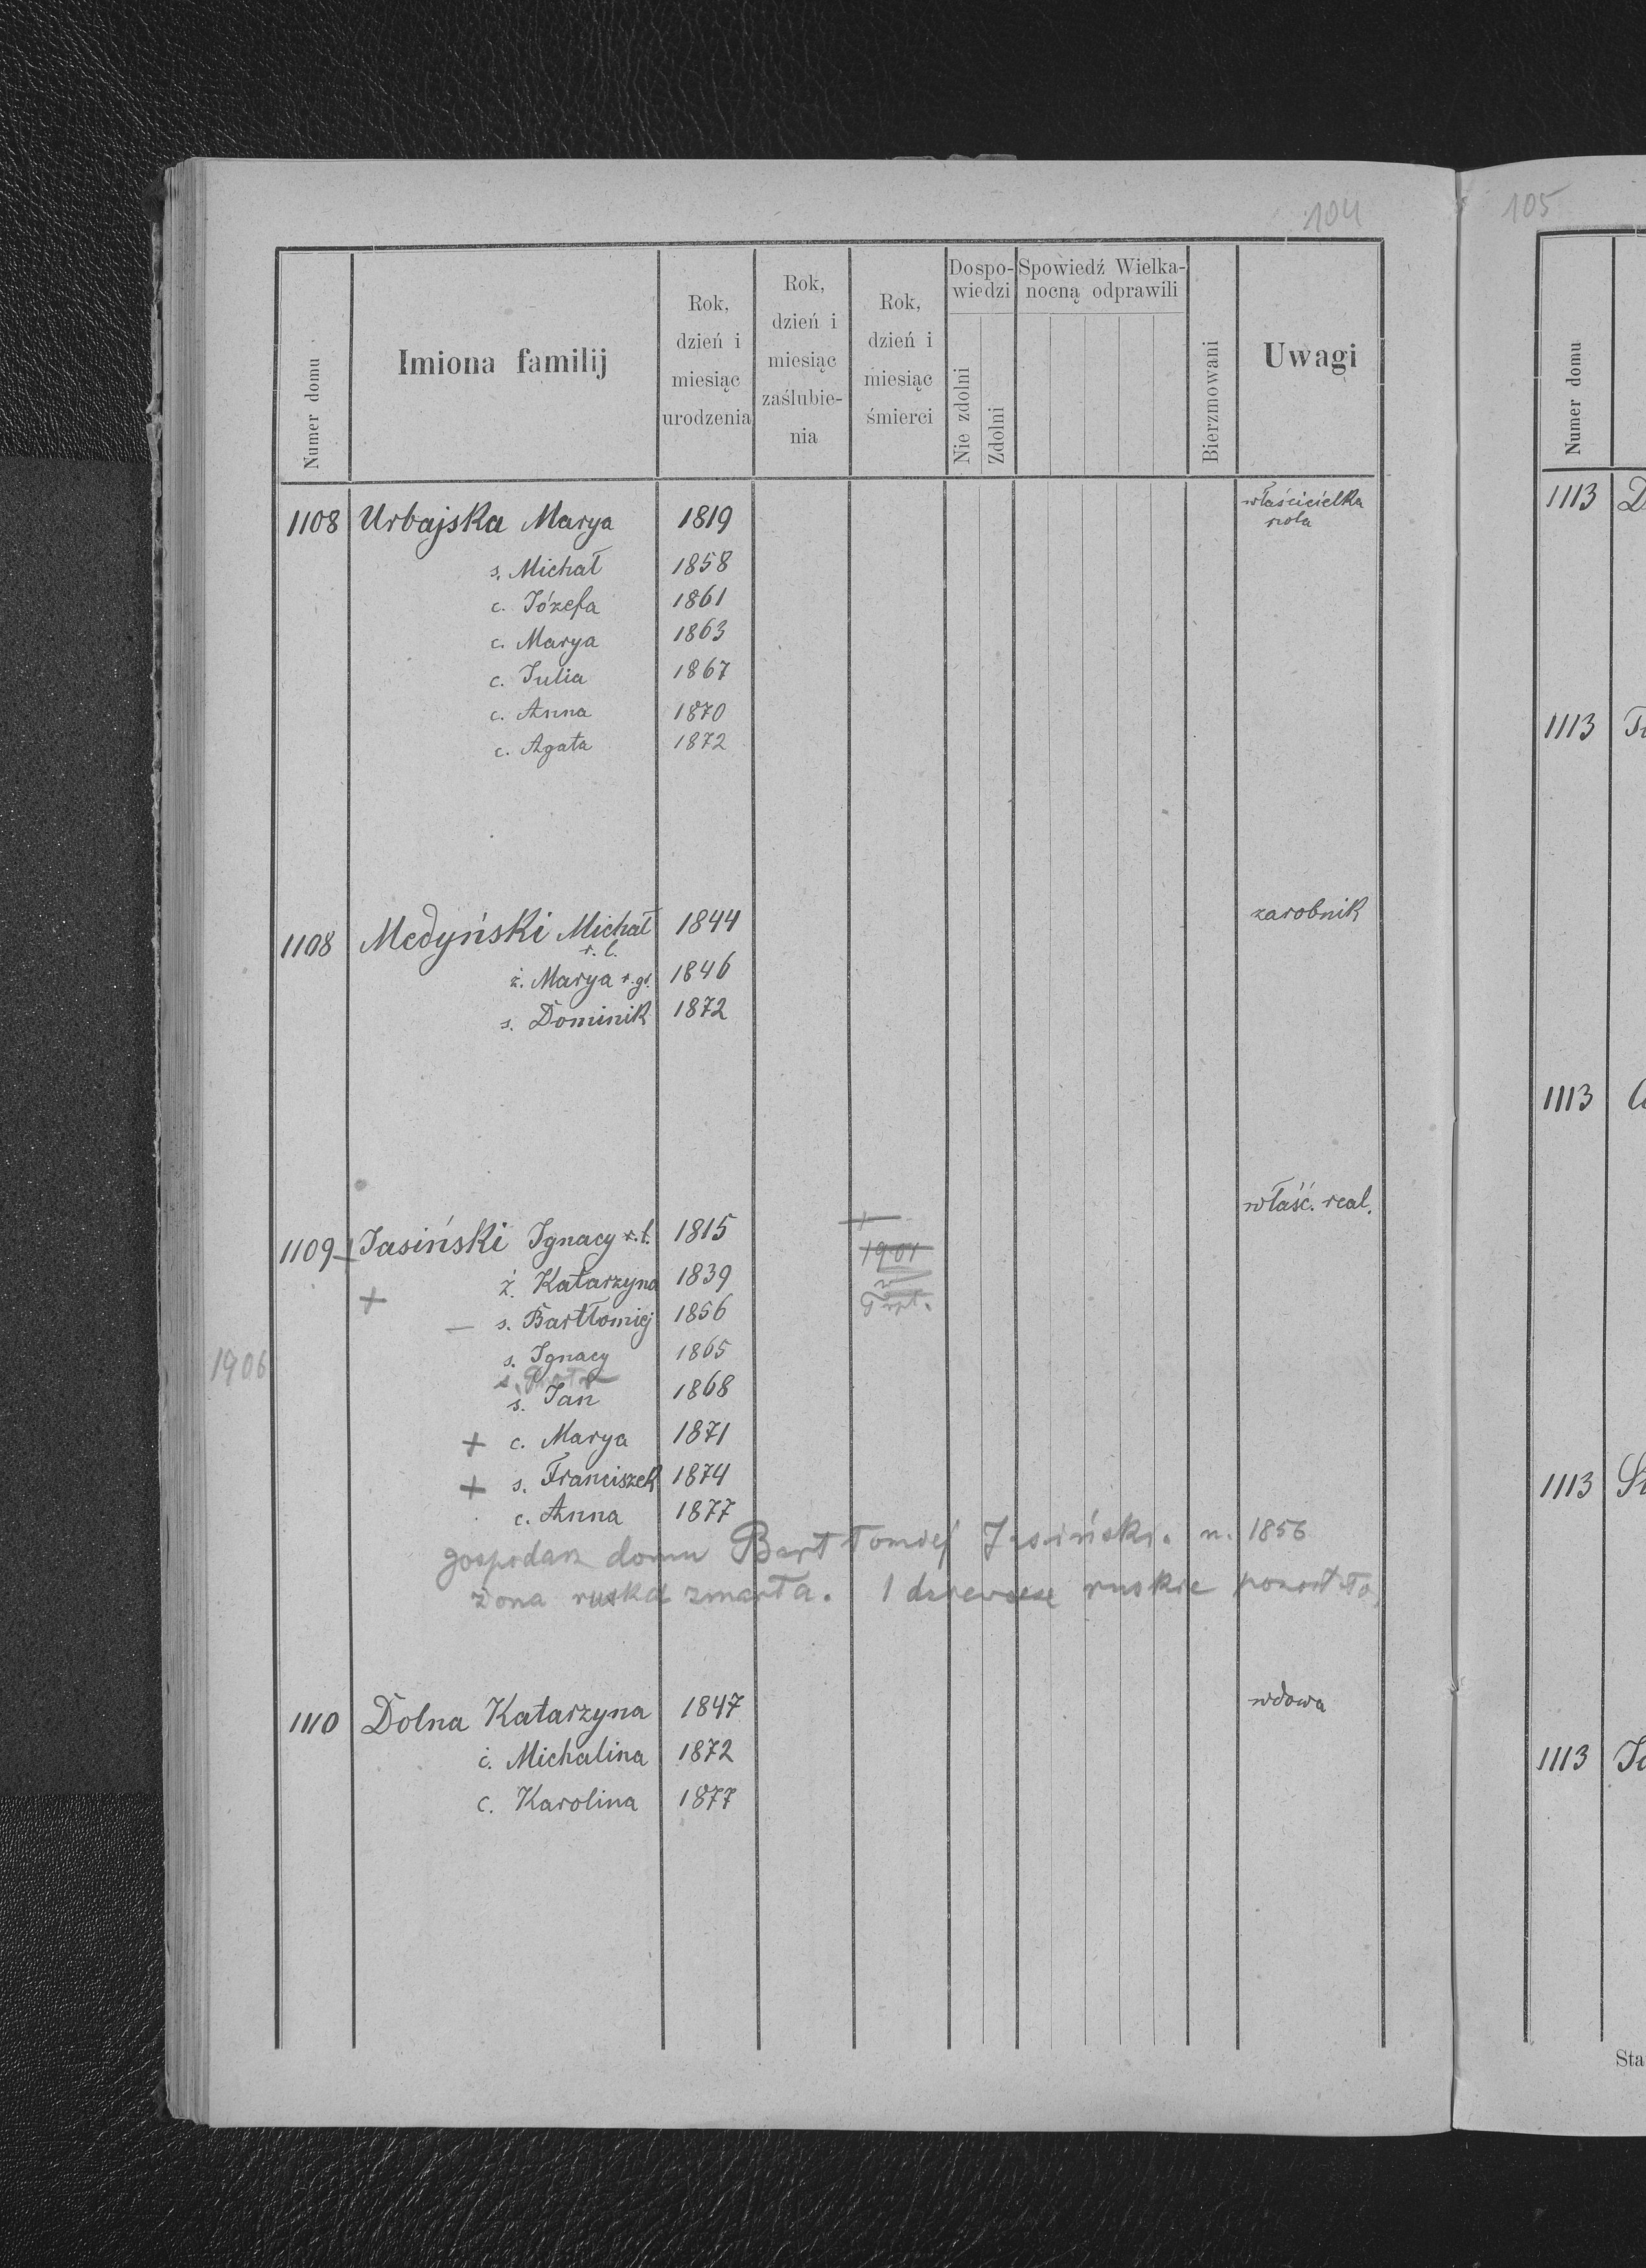 104
Numer domu
Imiona familij
Rok, dzień i miesiąc urodzenia
Rok, dzień i miesiąc zaślubie-nia
Rok, dzień i miesiąc śmierci
Dospo-wiedzi
Nie zdolni
Zdolni
Spowiedź Wielka-nocną odprawili
Bierzmowani
Uwagi
1108 Urbajska Marya 1819 właścicielka rola
s. Michał 1858
c. Józefa 1861
c. Marya 1863
c. Julia 1867
c. Anna 1870
c. Agata 1872
1108 Medyński Michał 1844 zarobnik
r. l.
ż. Marya r. gr. 1846
s. Dominik 1872
1109 Jasiński Ignacy r. l. 1815 + właść. real.
1901
+ ż. Katarzyna 1839
— s. Bartłomiej 1856
1906
s. Ignacy 1865
s. Jan 1868
+ c. Marya 1871
+ s. Franciszek 1874
c. Anna 1877
gospodarz domu Bartłomiej Jasiński. n. 1856
żona ruska zmarła. 1 ruskie
1110 Dolna Katarzyna 1847 wdowa
c. Michalina 1872
c. Karolina 1877
105
Numer domu
1113
1113
1113
1113
1113
Sta